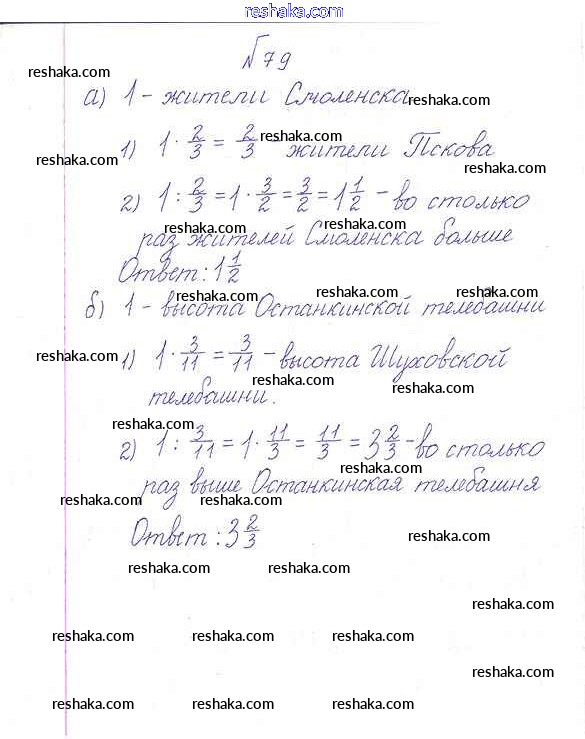 reshaka.com
№79
reshaka.com
а) 1 - жители Смоленска reshaka.com
reshaka.com 1) 1 · 2/3 = 2/3 - жители Пскова reshaka.com
reshaka.com
2) 1 : 2/3 = 1 · 3/2 = 3/2 = 1 1/2 - во столько
reshaka.com reshaka.com
раз жителей Смоленска больше
reshaka.com
Ответ: 1 1/2
reshaka.com reshaka.com reshaka.com
б) 1 - высота Останкинской телебашни
reshaka.com 1) 1 · 3/11 = 3/11 - высота Шуховской
reshaka.com reshaka.com
телебашни.
reshaka.com
2) 1 : 3/11 = 1 · 11/3 = 11/3 = 3 2/3 - во столько
reshaka.com
раз выше Останкинская телебашня
reshaka.com reshaka.com
Ответ: 3 2/3
reshaka.com
reshaka.com reshaka.com
reshaka.com
reshaka.com reshaka.com reshaka.com
reshaka.com
reshaka.com reshaka.com reshaka.com